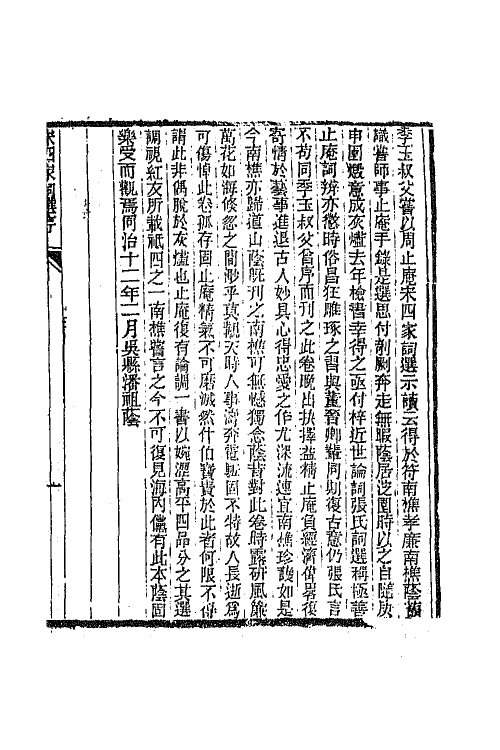 季玉叔父嘗以周止庵宋四家詞選示讀云得於符南樵孝廉南樵蔭
識嘗師事止庵手錄是選思付剞劂奔走無暇蔭居淀園時以之自隨庚
申園燬意成灰燼去年檢書幸得之亟付梓近世論詞張氏詞選稱極善
止庵詞辨亦懲時俗昌狂雕琢之習與董晉卿輩同期復古意仍張氏言
不苟同季玉叔父為序而刊之此卷晚出抉擇益精止庵負經濟偉畧復
寄情於藝事進退古人妙具心得忠愛之作尤深流連宜南樵珍護如是
今南樵亦歸道山蔭既刊之南樵可無憾獨念蔭昔對此卷時露研風簾
萬花如海倏忽之間邈乎莫覩天時人事濤奔電駛固不特故人長逝為
可傷悼此卷孤存固止庵精氣不可磨滅然什伯寶貴於此者何限不得
謂此非偶脫於灰燼也止庵復有論調一書以婉澀高平四品分之其選
調視紅友所載祇四之一南樵嘗言之今不可復見海內儻有此本蔭固
樂受而觀焉同治十二年二月吳縣潘祖蔭
宋四家詞選序
一